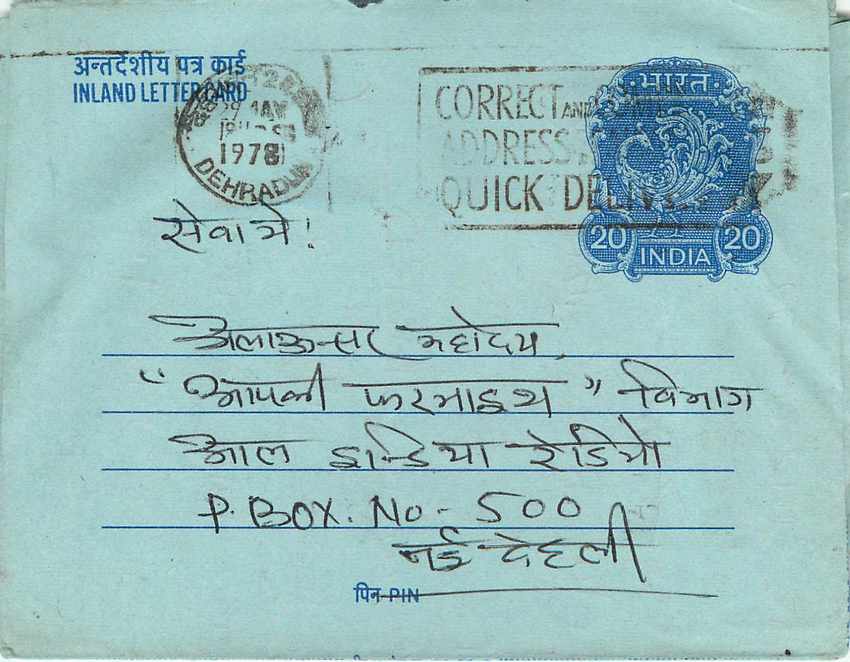 अन्तर्देशीय पत्र कार्ड
INLAND LETTER CARD
1978
DEHRADUN
CORRECT AND
ADDRESS
QUICK DELIVERY
भारत
20 20
INDIA
सेवा मे!
अलाऊन्सर महोदय,
“आपकी फरमाइश” विभाग
आल इन्डिया रेडियो
P. BOX. No - 500
नई देहली
पिन PIN